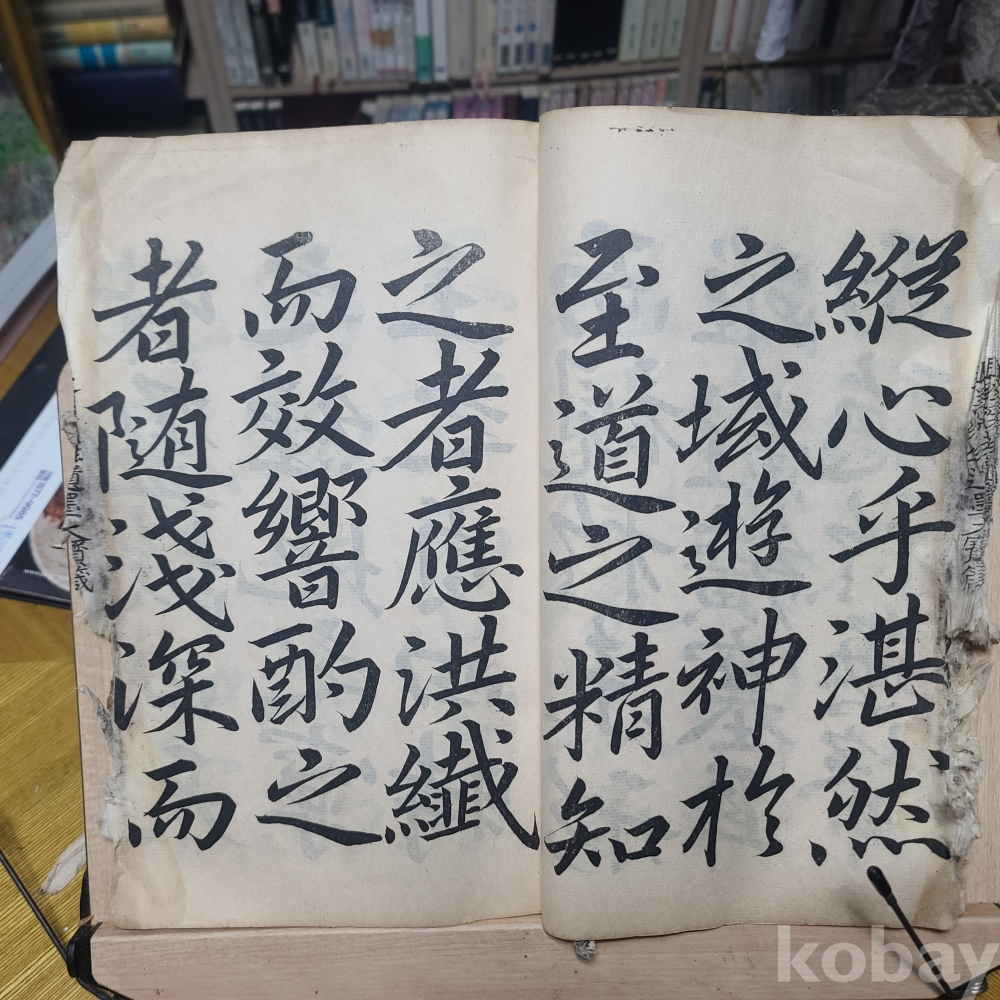 縱心乎湛然
之域遊神於
至道之精知
之者應洪纖
而效響酌之
者随浅深而
kobay